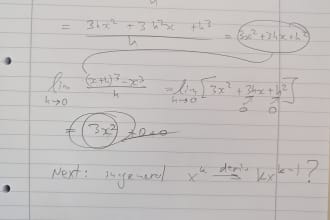 = 3hx² + 3h²x + h³ / h = 3x² + 3hx + h²
lim h→0 (x+h)³ - x³ / h = lim h→0 [3x² + 3hx + h²]
0 0
= 3x² + 0 + 0
Next: in general x^k deriv kx^(k-1) ?